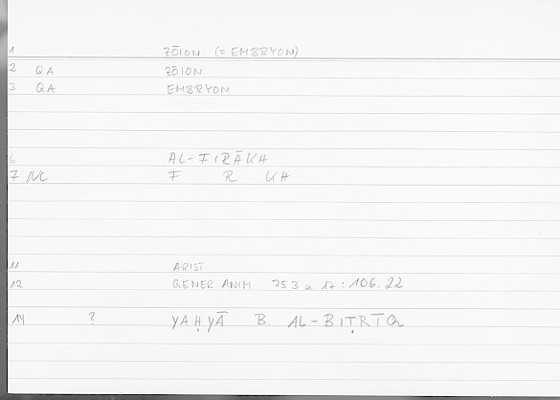 1 ZŌION (= EMBRYON)
2 QA ZŌION
3 QA EMBRYON
6 AL-FIRĀKH
7 NC F R KH
11 ARIST
12 GENER ANIM 753 a 17 : 106.22
14 ? YAḤYĀ B. AL-BIṬRĪQ